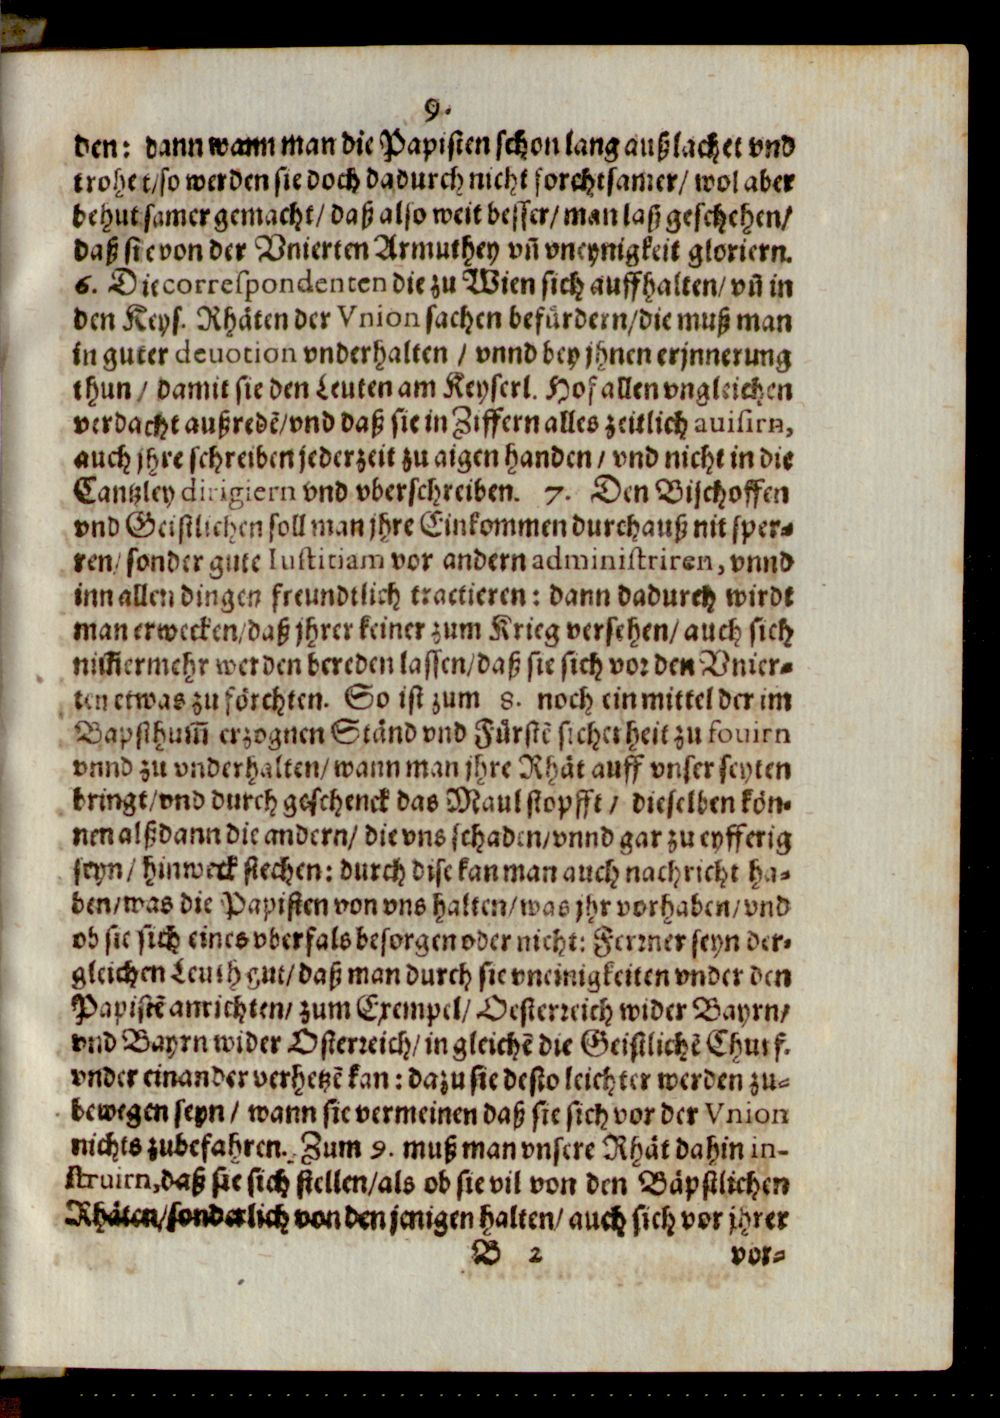 9.
den: dann wann man die Papisten schon lang außlachet vnd
trohet/so werden sie doch dadurch nicht forchtsamer/ wol aber
behutsamer gemacht/ daß also weit besser/ man laß geschehen/
daß sie von der Vnierten Armuthey vñ vneynigkeit gloriern.
6. Die correspondenten die zu Wien sich auffhalten/ vñ in
den Keys. Rhäten der Vnion sachen befürdern/die muß man
in guter deuotion vnderhalten / vnnd bey jhnen erjnnerung
thun / damit sie den Leuten am Keyserl. Hof allen vngleichen
verdacht außredẽ/vnd daß sie in Ziffern alles zeitlich auisirn,
auch jhre schreiben jederzeit zu aigen handen / vnd nicht in die
Cantzley dirigiern vnd vberschreiben. 7. Den Bischoffen
vnd Geistlichen soll man jhre Einkommen durchauß nit sper-
ren/ sonder gute Iustitiam vor andern administriren, vnnd
inn allen dingen freundtlich tractieren: dann dadurch wirdt
man erwecken/daß jhrer keiner zum Krieg versehen/ auch sich
nim̃ermehr werden bereden lassen/daß sie sich vor den Vnier-
ten etwas zu förchten. So ist zum 8. noch ein mittel der im
Bapsthum̃ erzognen Ständ vnd Fürstẽ sicherheit zu fouirn
vnnd zu vnderhalten/ wann man jhre Rhät auff vnser seyten
bringt/vnd durch geschenck das Maul stopfft / dieselben kön-
nen alßdann die andern/ die vns schaden/vnnd gar zu eyfferig
seyn / hinweck stechen: durch dise kan man auch nachricht ha-
ben/was die Papisten von vns halten/was jhr vorhaben/vnd
ob sie sich eines vberfals besorgen oder nicht: Ferrner seyn der-
gleichen Leuth gut/ daß man durch sie vneinigkeiten vnder den
Papistẽ anrichten/ zum Exempel/ Oesterreich wider Bayrn/
vnd Bayrn wider Osterreich/ in gleichẽ die Geistlichẽ Churf.
vnder einander verhetzẽ kan: dazu sie desto leichter werden zu-
bewegen seyn / wann sie vermeinen daß sie sich vor der Vnion
nichts zubefahren. Zum 9. muß man vnsere Rhät dahin in-
struirn, daß sie sich stellen/als ob sie vil von den Bäpstlichen
Rhäten/sonderlich von den jenigen halten/ auch sich vor jhrer
B 2 vor-